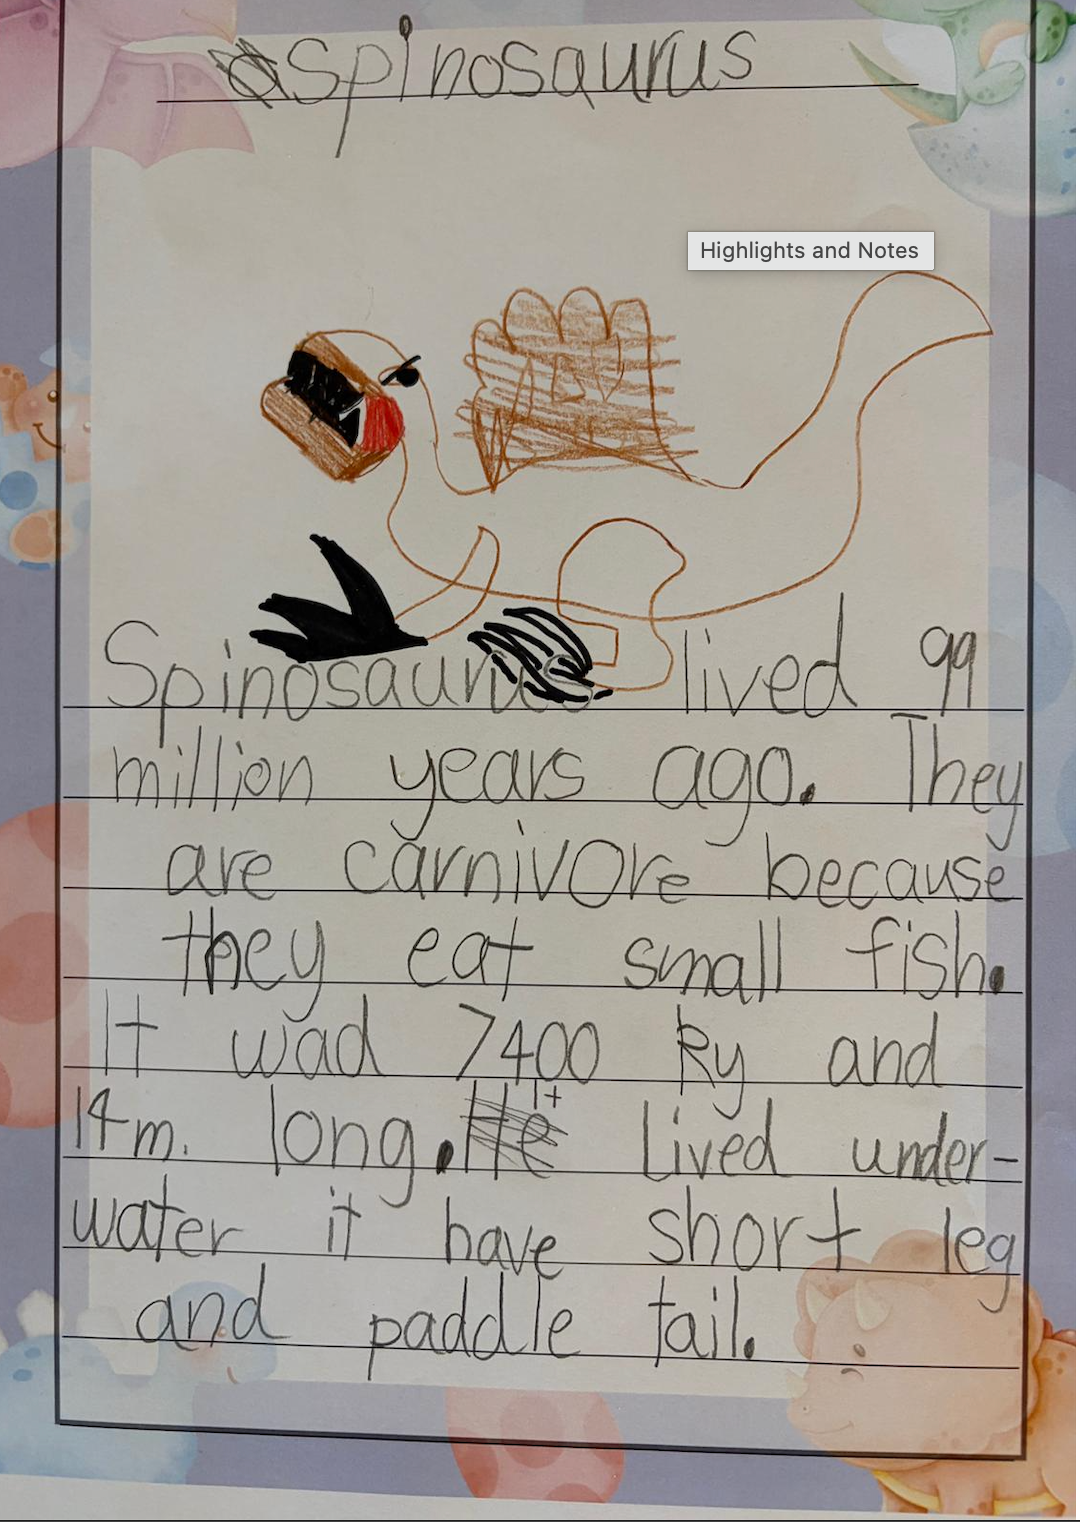 Spinosaurus
Highlights and Notes
Spinosaurus lived 99
million years ago. They
are carnivore because
they eat small fish.
It wad 7400 ky and
14m. long. It lived under-
water it have short leg
and paddle tail.